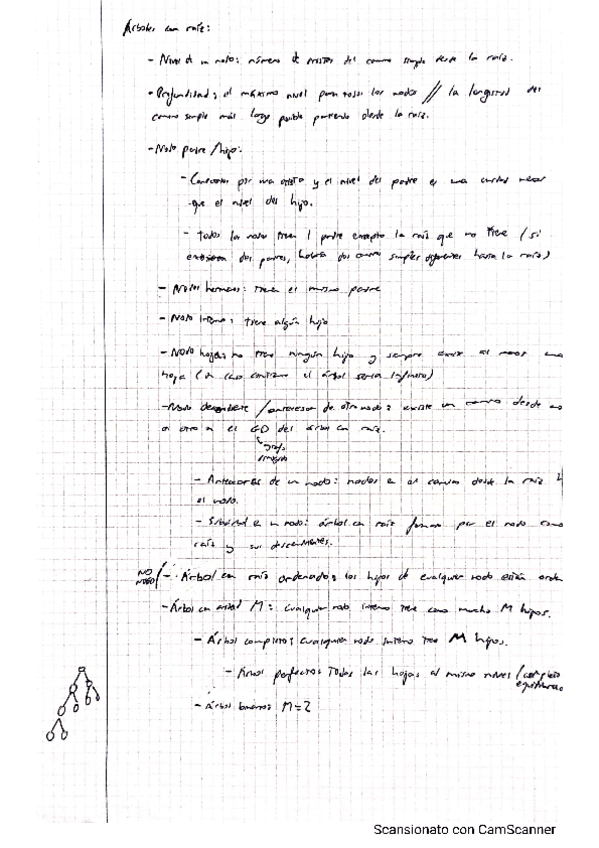 Árboles con raíz:
- Nivel de un nodo: número de aristas del camino simple desde la raíz.
- Profundidad: el máximo nivel para todos los nodos // la longitud del
camino simple más largo posible partiendo desde la raíz.
- Nodo padre/hijo:
- Conectados por una arista y el nivel del padre es una unidad menor
que el nivel del hijo.
- Todos los nodos tienen 1 padre excepto la raíz que no tiene (si
dos padres, habría dos caminos simples diferentes hasta la raíz)
- Nodos hermanos: tienen el mismo padre
- Nodo interno: tiene algún hijo
- Nodo hoja: no tiene ningún hijo y siempre existe al menos una
hoja (en caso contrario el árbol sería infinito)
- Nodo descendiente/antecesor de otro nodo: existe un camino desde
al otro en el GD del árbol con raíz.
grafo
dirigido
- Antecesores de un nodo: nodos en el camino desde la raíz
al nodo.
- Subárbol en un nodo: árbol con raíz formado por el nodo como
raíz y sus descendientes.
NO
- Árbol con raíz ordenado: los hijos de cualquier nodo están orde
- Árbol con aridad M: cualquier nodo interno tiene como mucho M hijos.
- Árbol completo: cualquier nodo interno tiene M hijos.
- Árbol perfecto: Todas las hojas al mismo nivel (completo
equilibrado
- Árbol binario: M=2
Scansionato con CamScanner